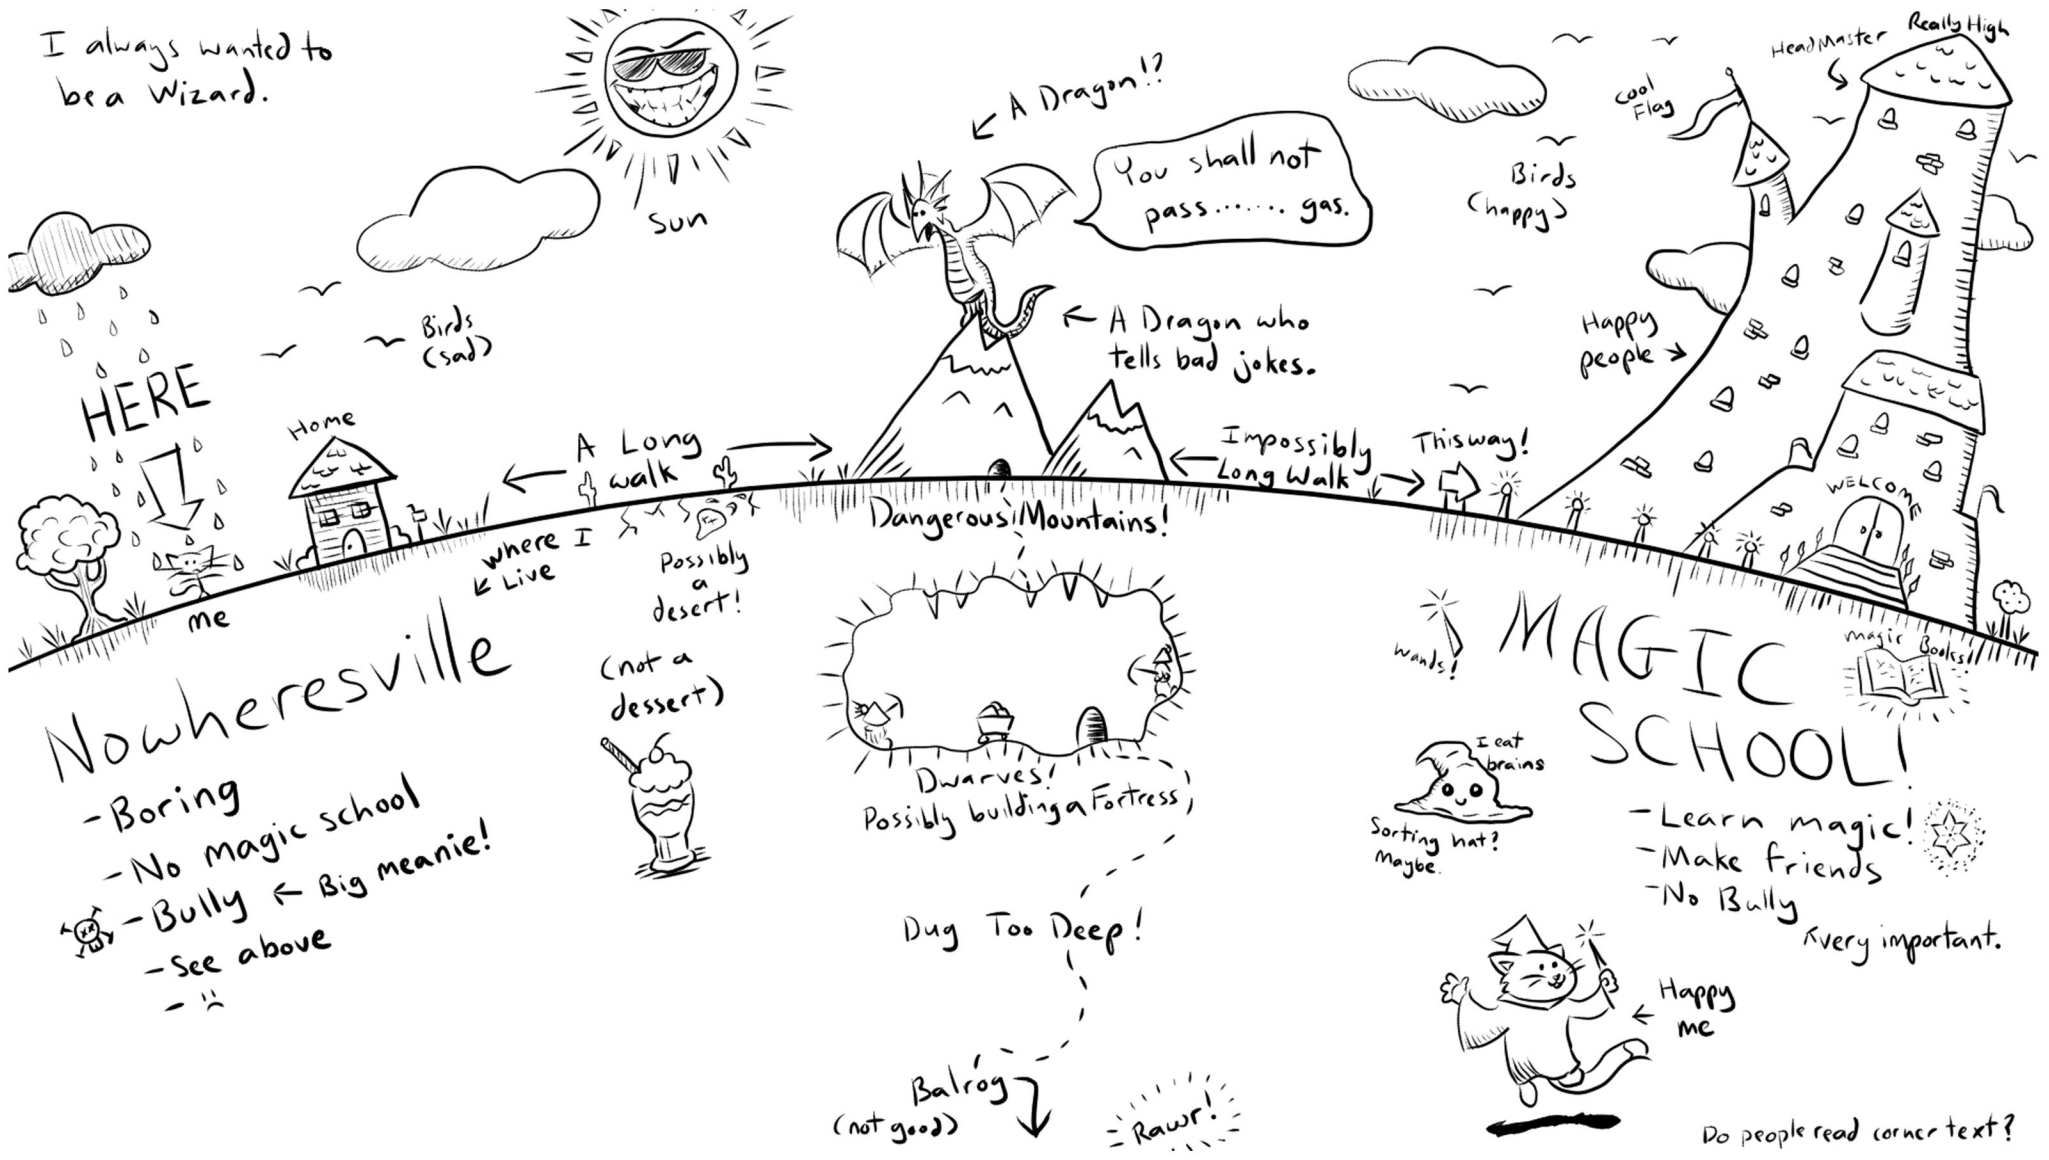 I always wanted to
be a Wizard.
Sun
A Dragon!?
You shall not
pass....... gas.
A Dragon who
tells bad jokes.
Birds
(happy)
Cool
Flag
HeadMaster
Really High
Happy
people
Birds
(sad)
HERE
Home
Me
A Long
walk
Where I
Live
Possibly
a
desert!
(not a
dessert)
Dangerous Mountains!
Impossibly
Long Walk
This way!
WELCOME
Nowheresville
- Boring
- No magic school
- Bully ← Big meanie!
- See above
- :(
Dwarves!
Possibly building a Fortress
Dug Too Deep!
Balrog
(not good)
Rawr!
Wands!
MAGIC
SCHOOL!
Magic
Books!
I eat
brains
Sorting hat?
Maybe.
- Learn magic!
- Make friends
- No Bully
very important.
Happy
me
Do people read corner text?